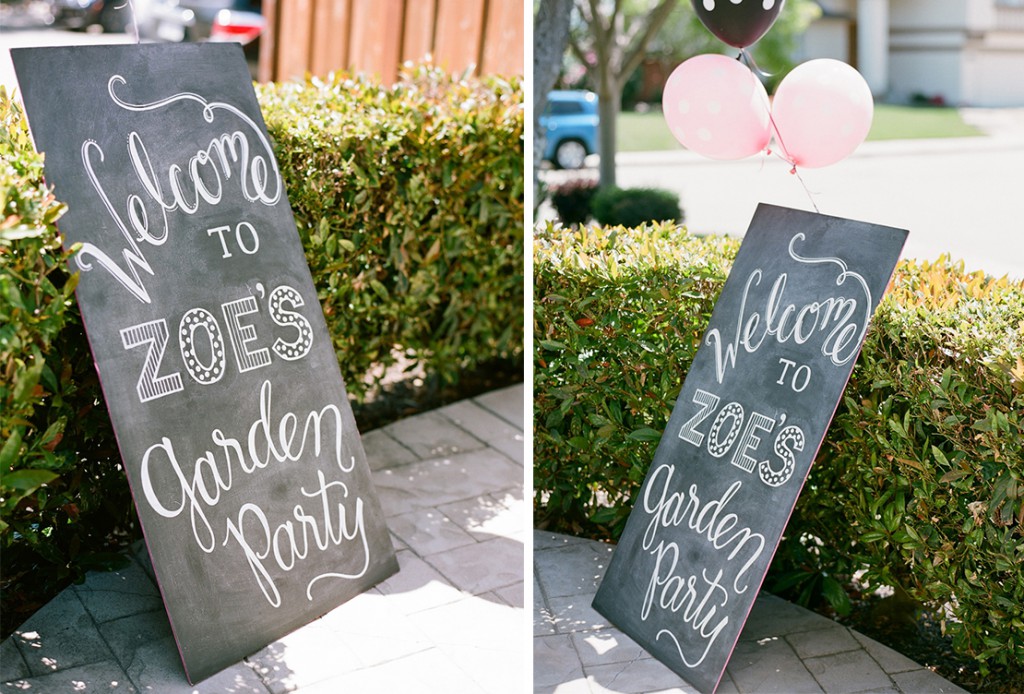 Welcome
TO
ZOE'S
Garden
Party
Welcome
TO
ZOE'S
Garden
Party